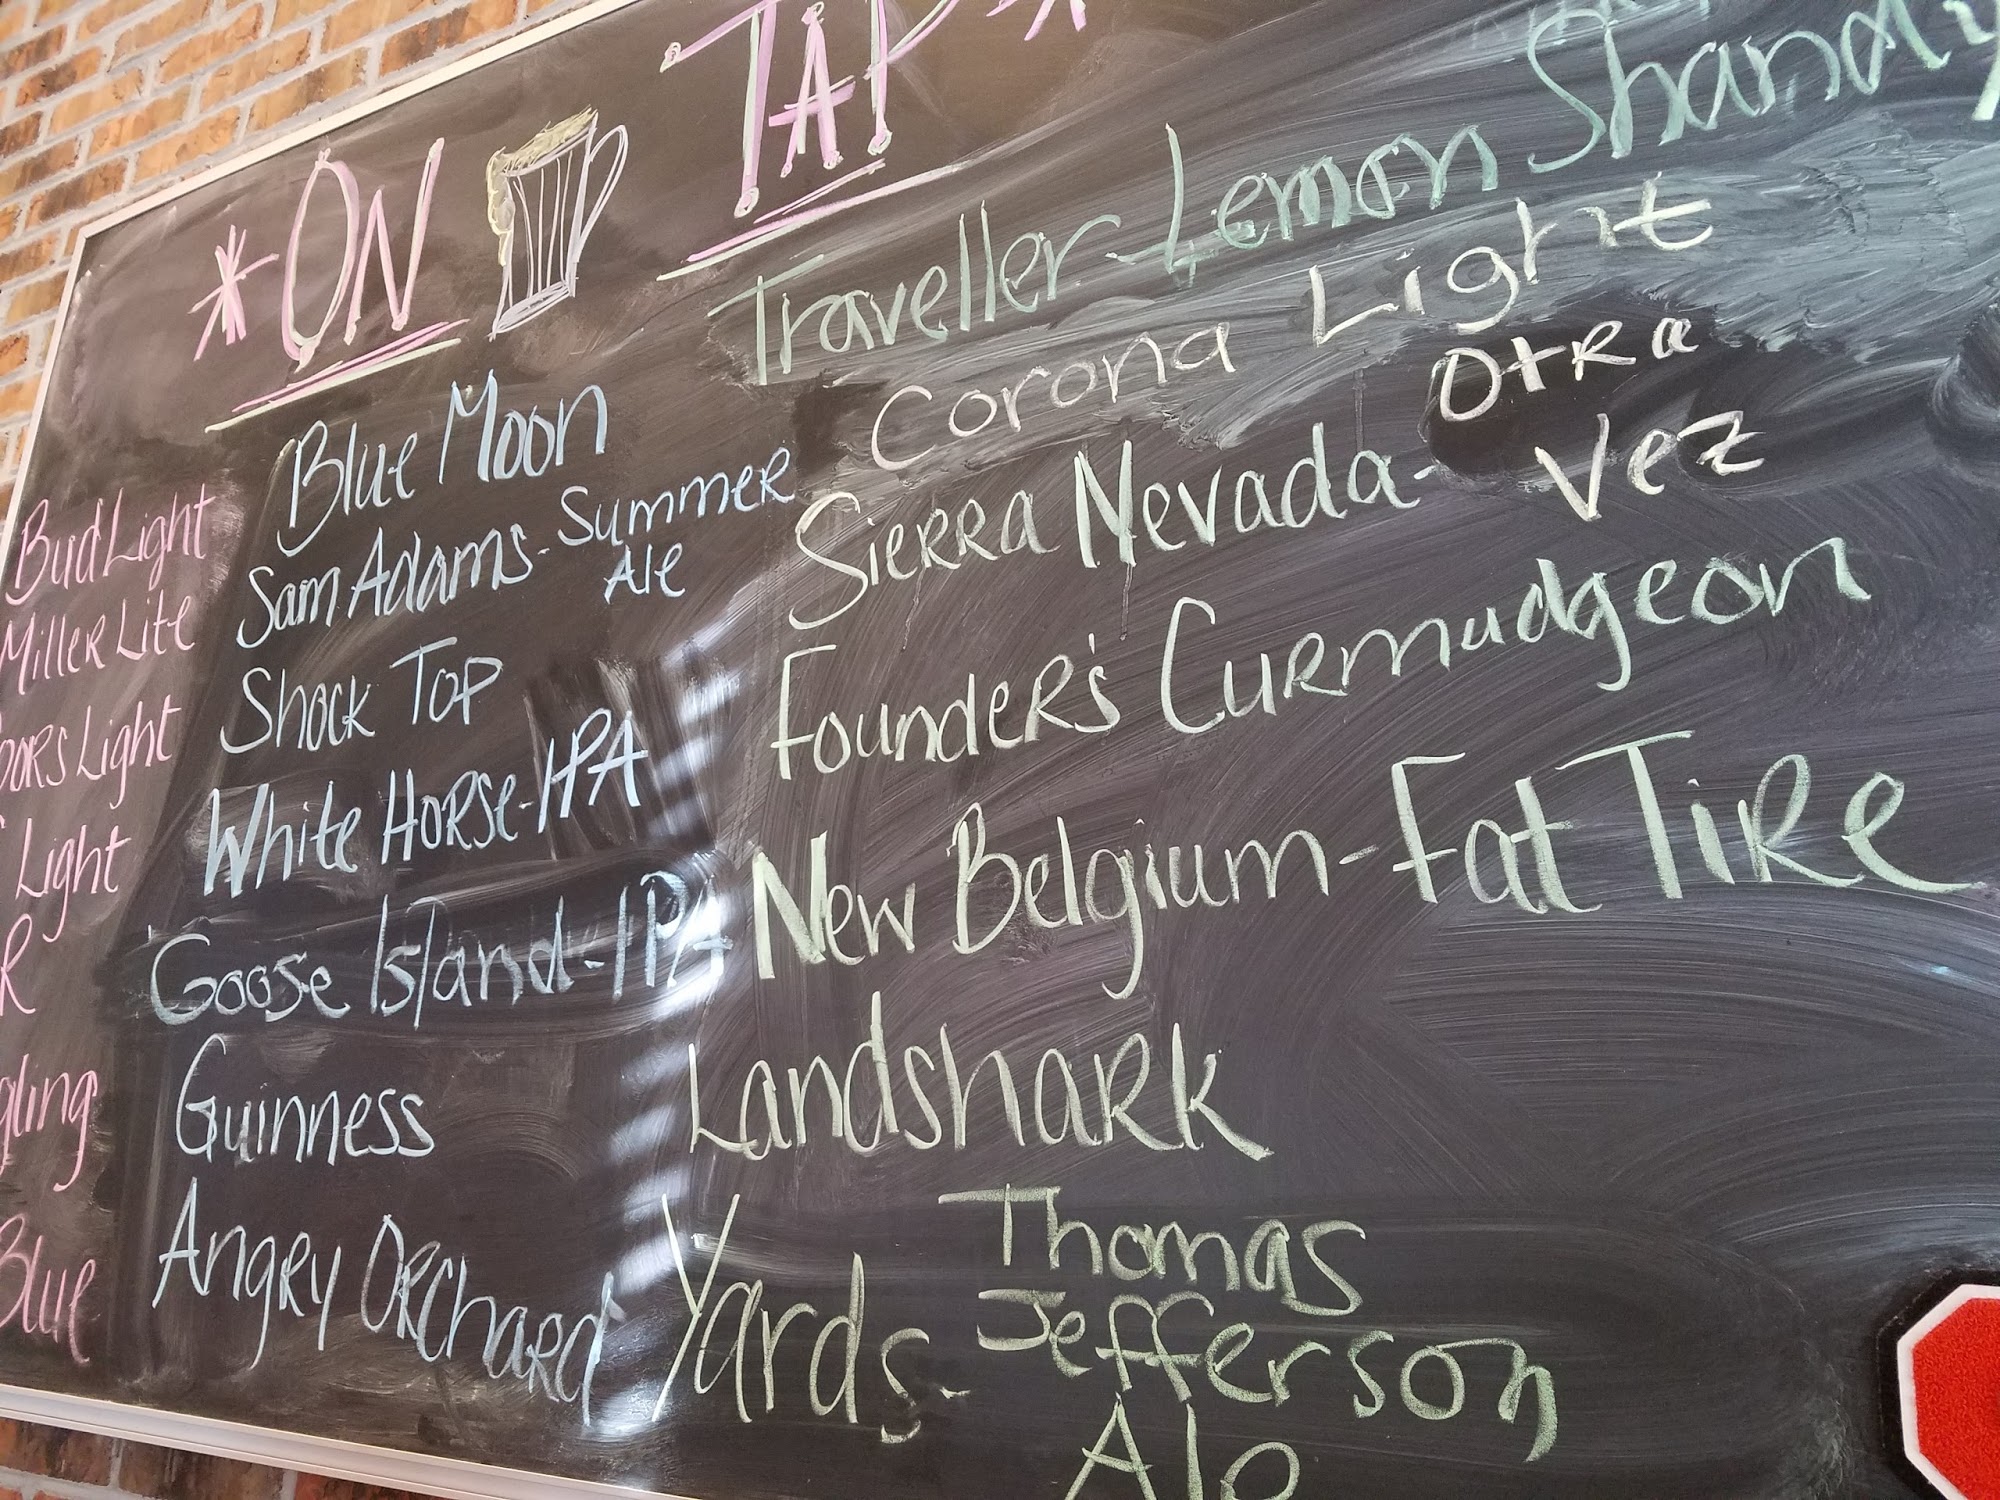 *ON TAP*
Bud Light
Miller Lite
Light
Light
Blue
Blue Moon
Sam Adams-Summer
Ale
Shock Top
White Horse-IPA
Goose Island-IPA
Guinness
Angry Orchard
Traveller-Lemon Shandy
Corona Light
Sierra Nevada-Otra
Vez
Founder's Curmudgeon
New Belgium-Fat Tire
Landshark
Yards-Thomas
Jefferson
Ale